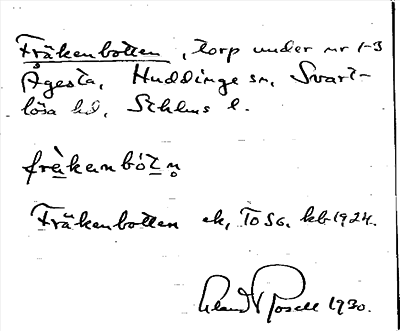 Fräkenbotten, torp under nr 1-3
Ågesta, Huddinge sn, Svart-
lösa hd, Sthlms l.
fràkanbót̲n̥
Fräkenbotten ek, ToSG. kb 1924.
1930.